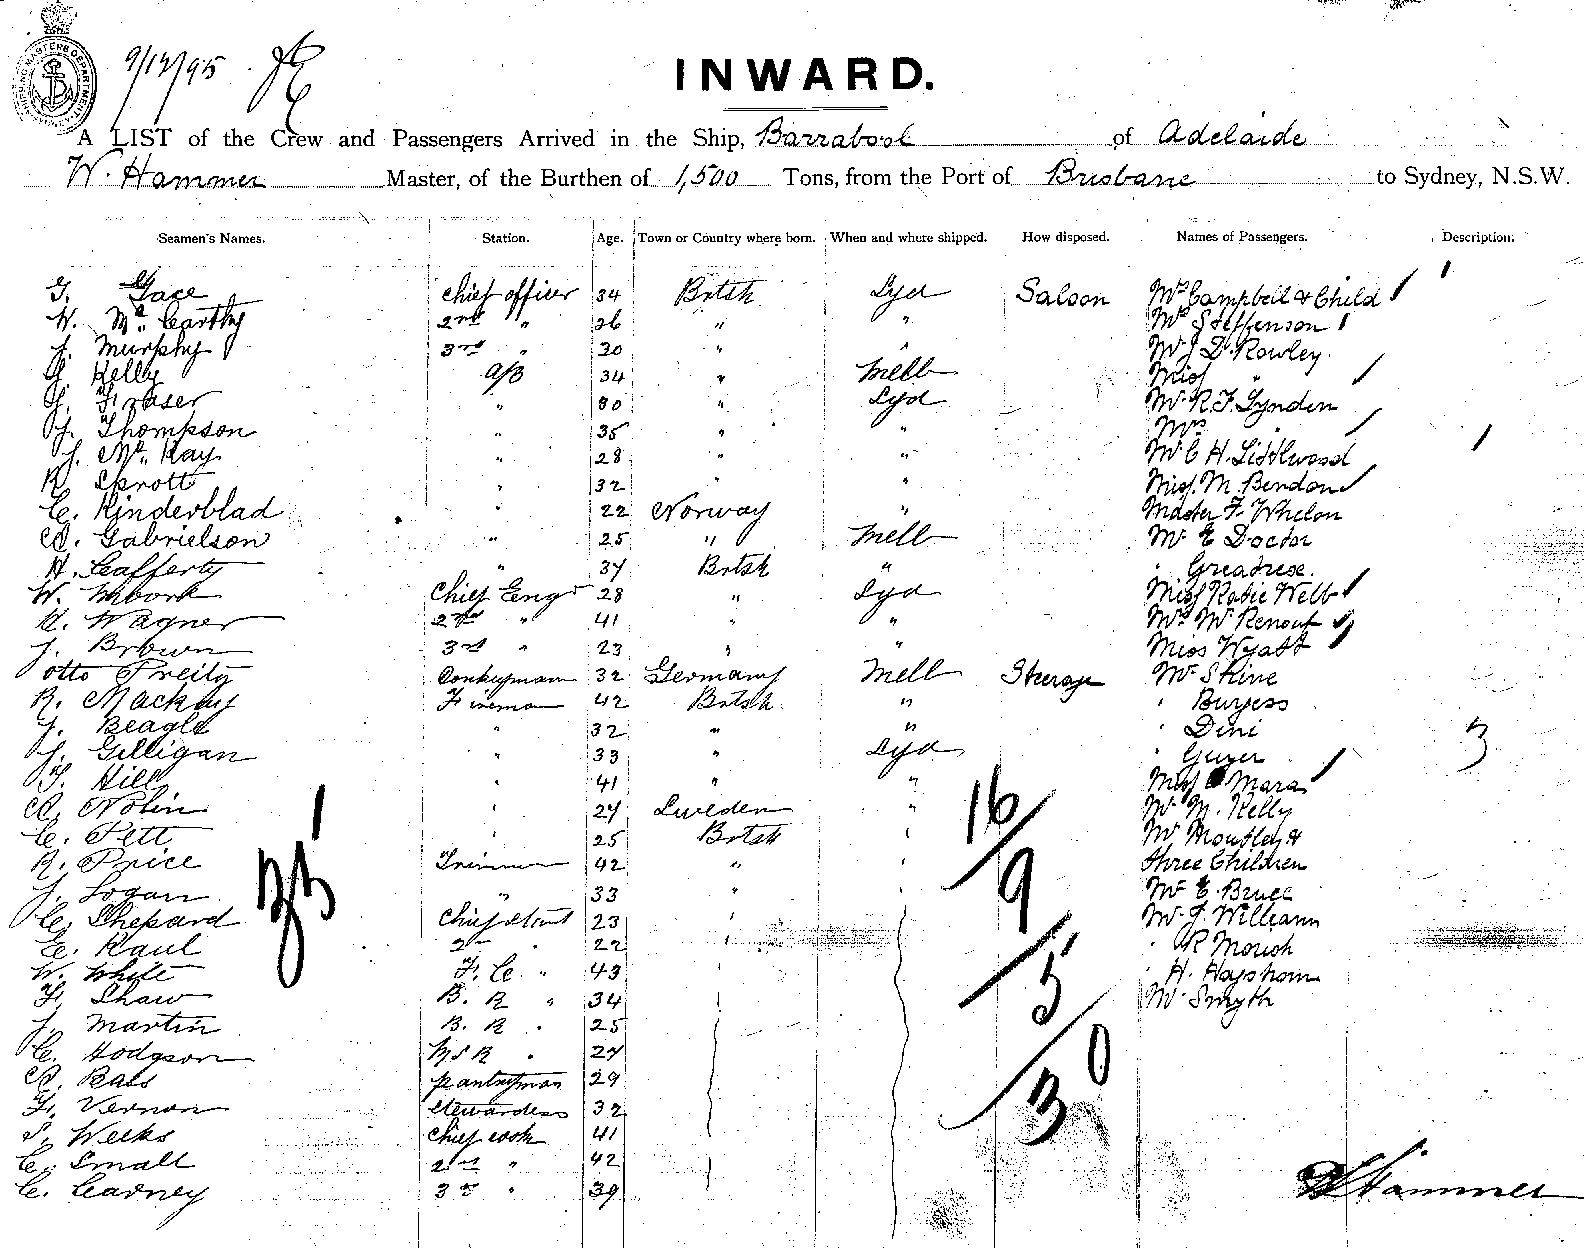 SHIPPING MASTERS DEPARTMENT
9/12/95
INWARD.
A LIST of the Crew and Passengers Arrived in the Ship, Barrabool of Adelaide
W. Hammer Master, of the Burthen of 1,500 Tons, from the Port of Brisbane to Sydney, N.S.W.
Seamen's Names. Station. Age. Town or Country where born. When and where shipped. How disposed. Names of Passengers. Description.
Gace Chief officer 34 Brtsh Syd Saloon Mrs Campbell & Child
W. Mc. Carthy 2nd " 26 " " Mrs Steffenson
J. Murphy 3rd " 30 " " Mr J D. Rowley
Kelly A/B 34 " Melb Miss "
Fraser " 30 " Syd Mr R. F. Lynden
J. Thompson " 35 " " Mrs "
J. Mc. Kay " 28 " " Mr C H. Littlwood
R. Sprott " 32 " " Miss. M. Bendon
C. Kinderblad " 22 Norway " Master F. Whelon
A. Gabrielson " 25 " Melb Mr E Doctor
H. Lafferty " 37 Brtsh " " Greatrese
W. Mbork Chief Engr 28 " Syd Miss Katie Webb
H. Wagner 2nd " 41 " " Mrs Mc Renouf
J. Brown 3rd " 23 " " Miss Wyatt
Otto Preity Donkeyman 32 Germany Melb Sterage Mr Skine
R. Mackay Fireman 42 Brtsh " " Burgess
J. Beagle " 32 " " " Dini
J. Gilligan " 33 " Syd " Guyer 3
T. Hill " 41 " " Miss O Mara
A. Nolin " 27 Sweden " Mr M. Kelly
C. Pett " 25 Brtsh " Mr Moutley &
R. Price Trimmer 42 " " three Children
J. Logan " 33 " " Mr E. Bruce
C. Shepard Chief stout 23 " Mr J. Williams
E. Kaul 2nd " 22 " " R Mouch
W. White F. C. " 43 " H. Haysham
F. Shaw B. R " 34 Mr Smyth
J. Martin B. R " 25
C. Hodgson M S R " 27
A. Bass pantryman 29
F. Vernon Stewardess 32
S. Weeks Chief cook 41
C. Small 2nd " 42
C. Carney 3rd " 39
16/9/5/30
W Hammer